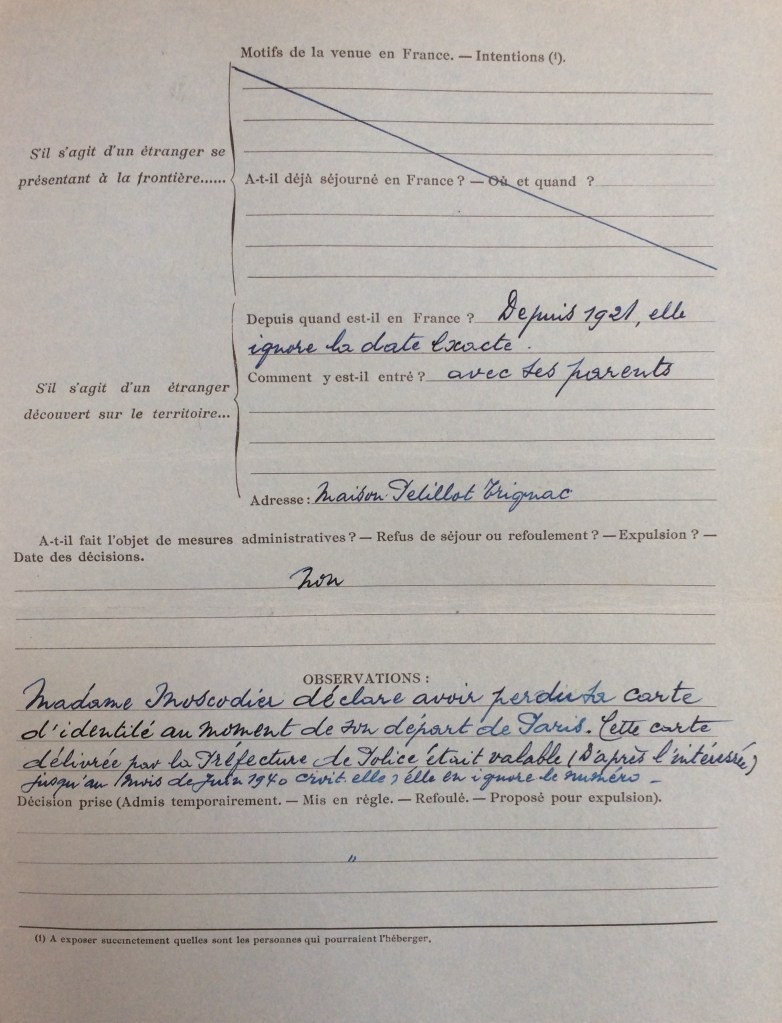 Motifs de la venue en France. — Intentions (1).
S'il s'agit d'un étranger se
présentant à la frontière......
A-t-il déjà séjourné en France ? — Où et quand ?
Depuis quand est-il en France ? Depuis 1921, elle
ignore la date exacte.
S'il s'agit d'un étranger
découvert sur le territoire...
Comment y est-il entré ? avec ses parents
Adresse : Maison Pelillot Trignac
A-t-il fait l'objet de mesures administratives ? — Refus de séjour ou refoulement ? — Expulsion ? —
Date des décisions.
non
OBSERVATIONS :
Madame Moscodier déclare avoir perdu sa carte
d'identité au moment de son départ de Paris. Cette carte
délivrée par la Préfecture de Police était valable (D'après l'intéressée)
jusqu'au mois de Juin 1940 croit elle, elle en ignore le numéro —
Décision prise (Admis temporairement. — Mis en règle. — Refoulé. — Proposé pour expulsion).
"
(1) A exposer succinctement quelles sont les personnes qui pourraient l'héberger.